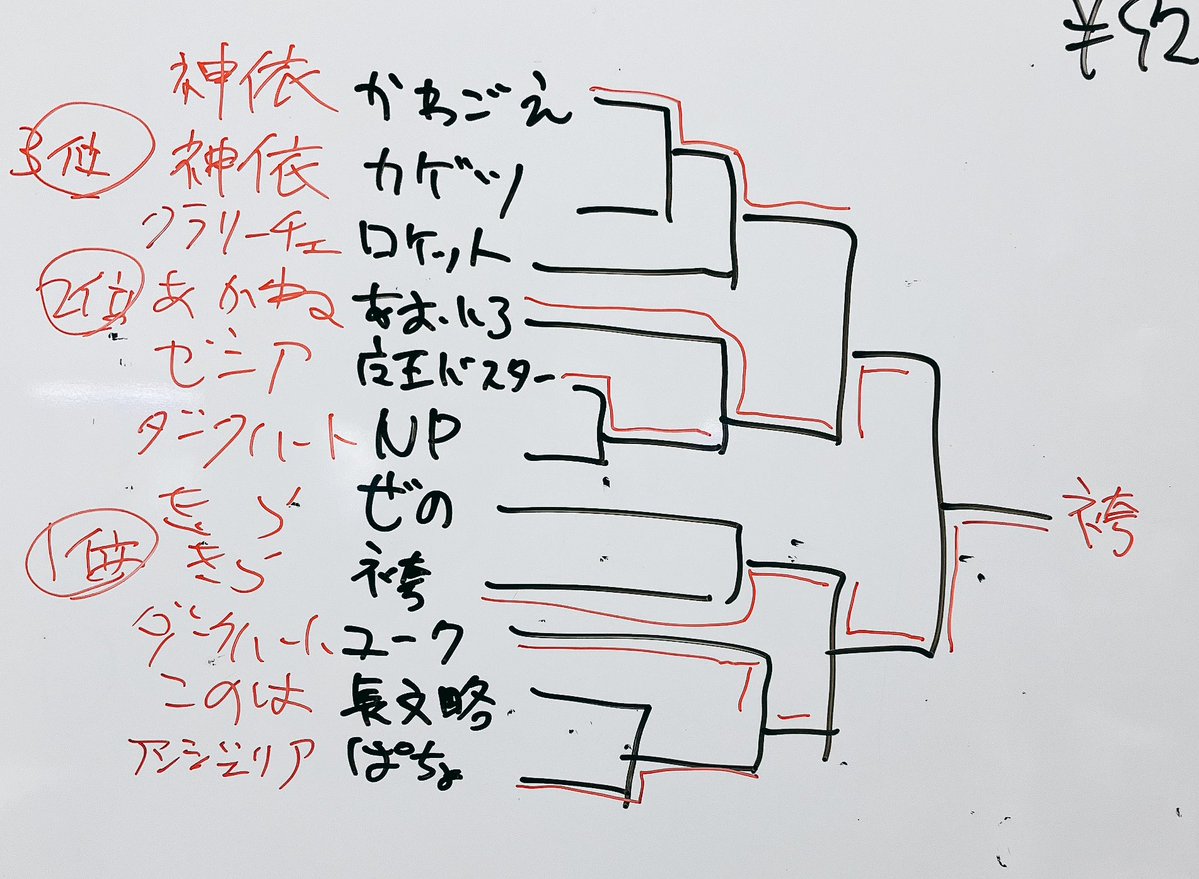 神依 かわごえ
3位 神依 カゲツ
クラリーチェ ロケット
2位 あかね あおいろ
ゼニア 店王バスター
ダークハート NP
きら ぜの
1位 きら 袴
ダークハート ユーク
このは 長文略
アンジェリア ぱちょ
袴